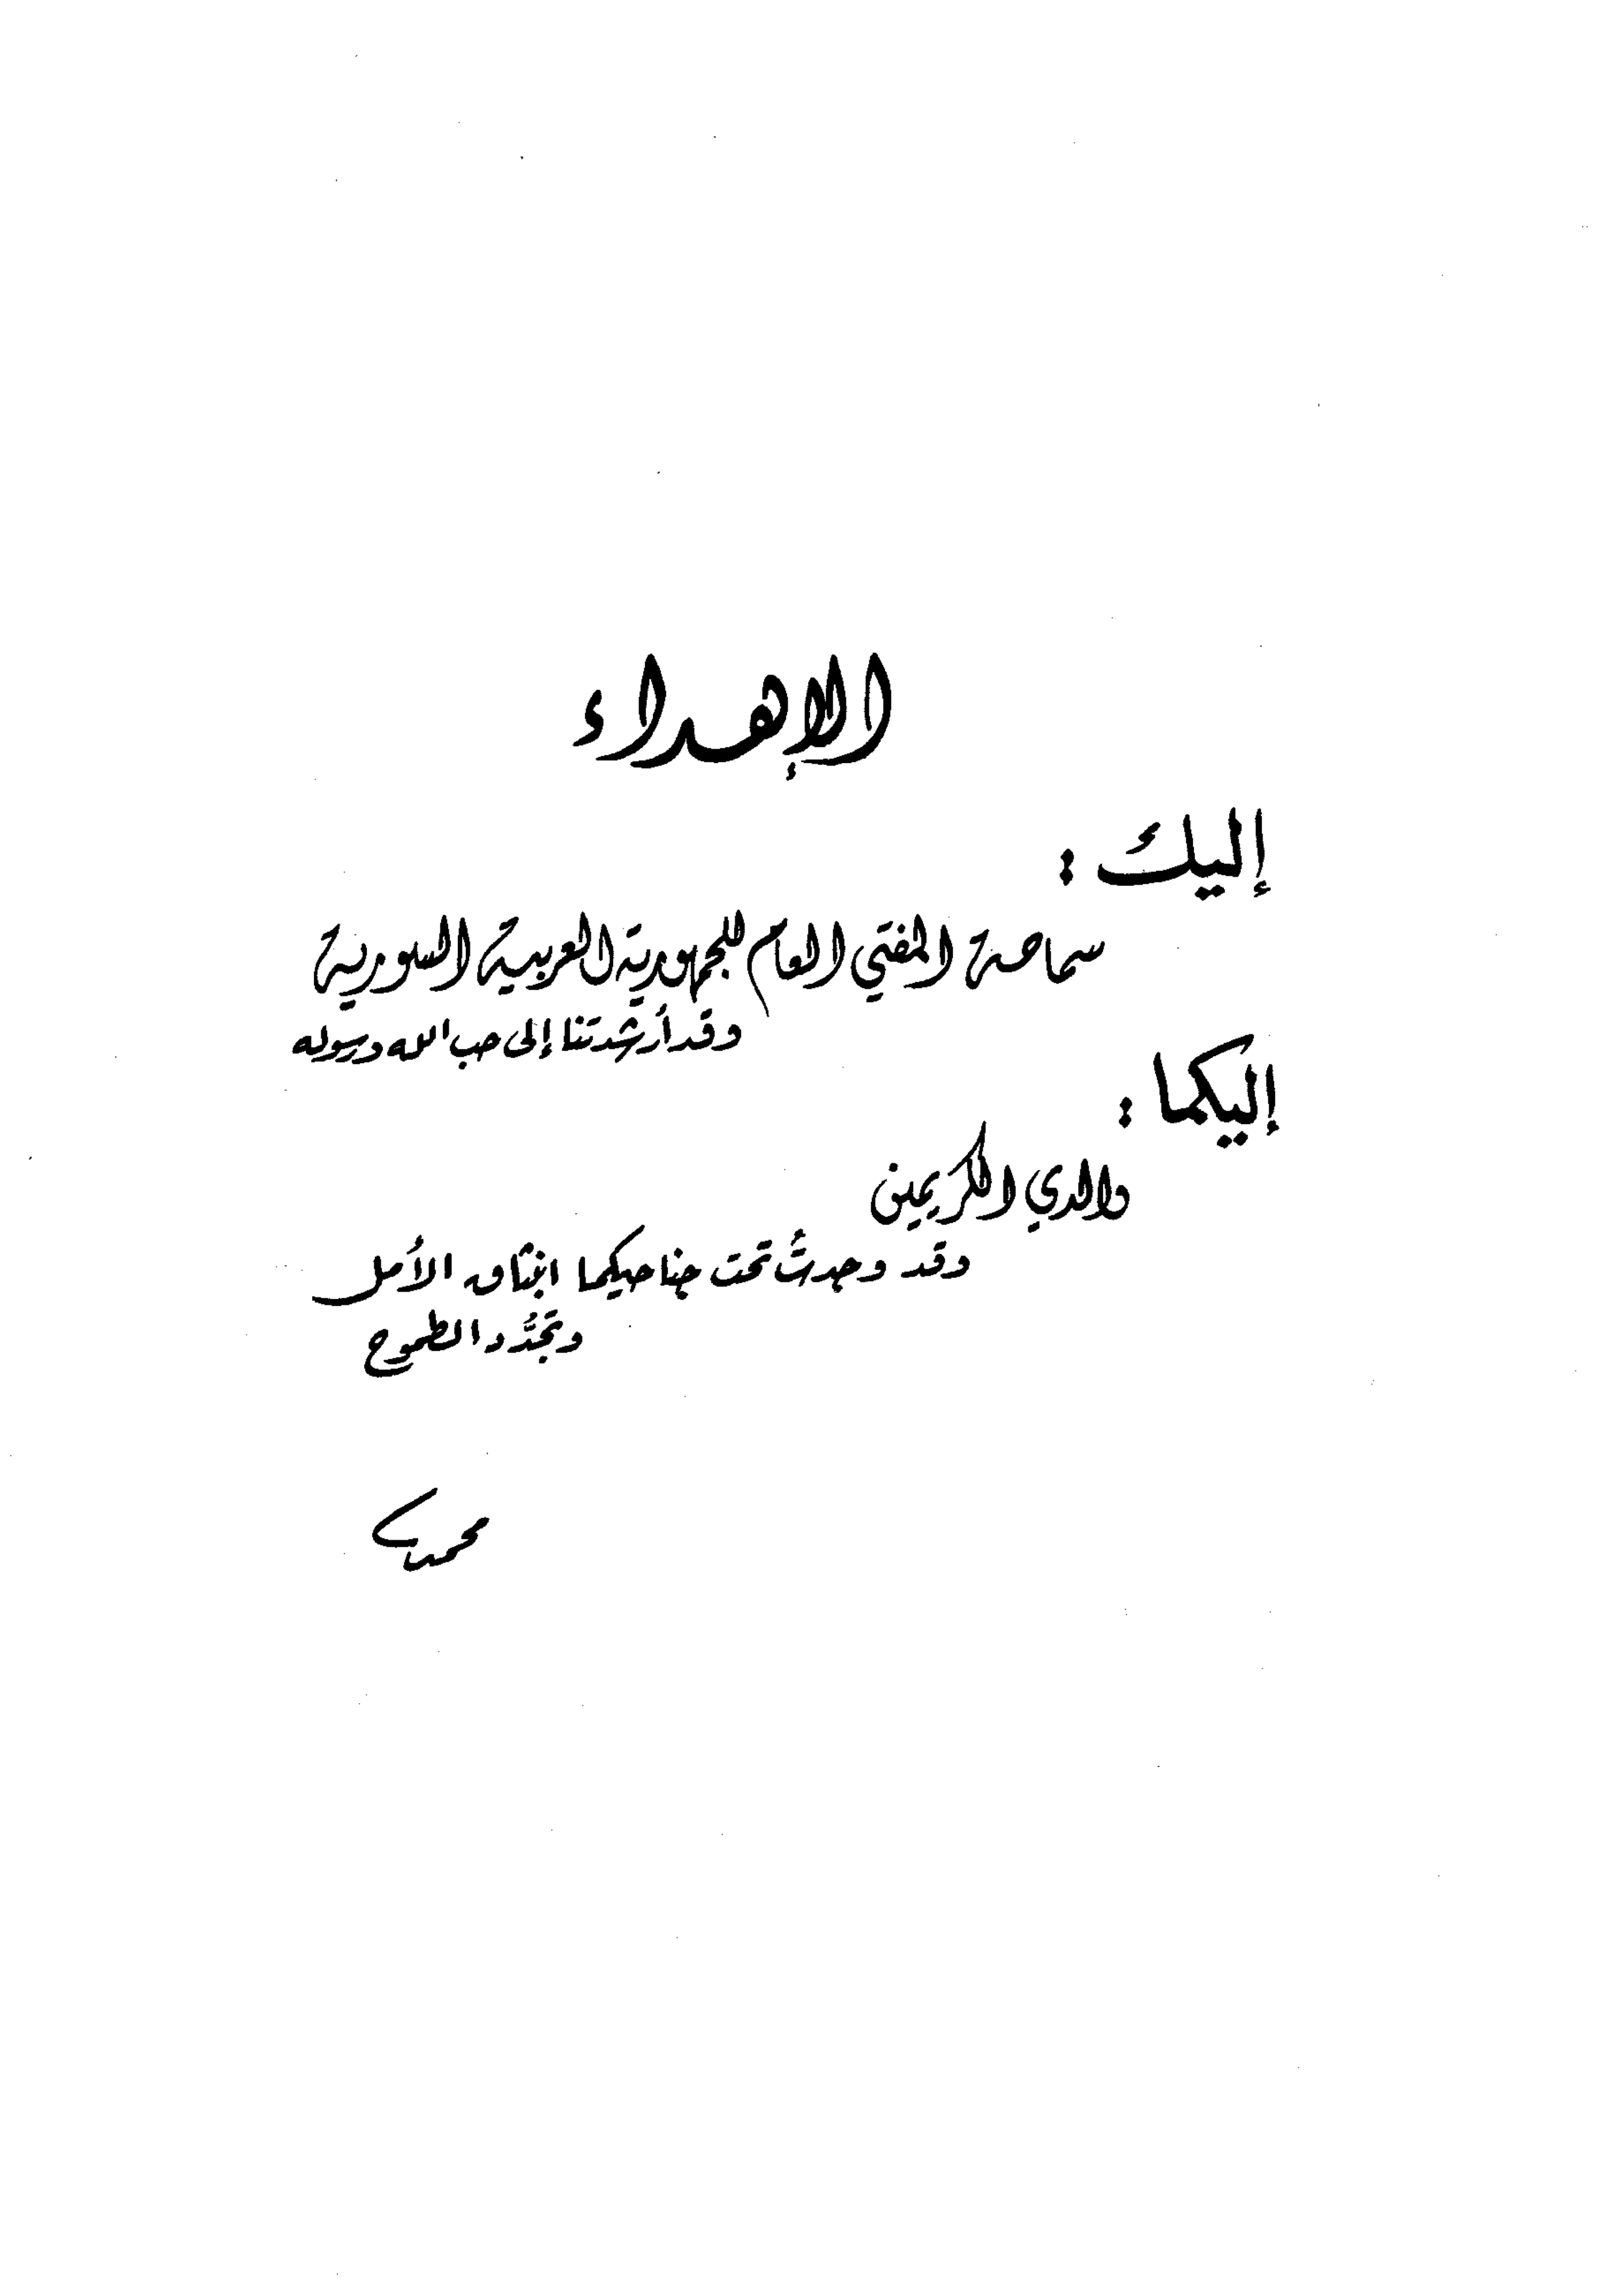 الإهداء
إليك :
سماحة المفتي العام للجمهورية العربية السورية
وقد أرشدتنا إلى حب الله ورسوله
إليكما :
والدي الكريمين
وقد وجدتُ تحت جناحيكما انبثاق الأمل
وتجدُّد الطموح
محمد